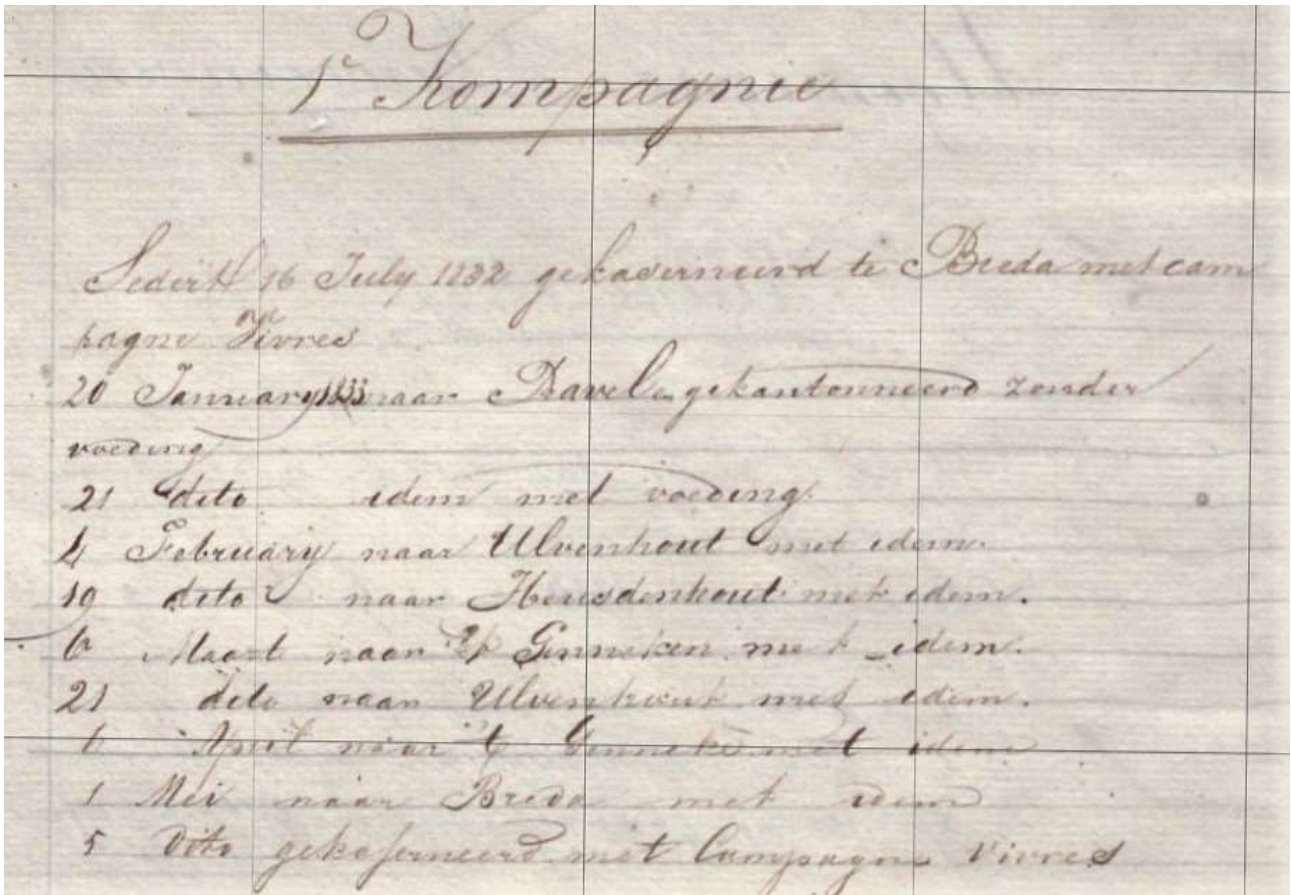 1e Kompagnie
Sedert 16 July 1832 gekaserneerd te Breda met cam
pagne Vivres
20 January 1833 naar Bavel gekantonneerd zonder
voeding
21 dito idem met voeding.
4 February naar Ulvenhout met idem.
19 dito naar Heusdenhout met idem.
6 Maart naar 't Ginneken met idem.
21 dito naar Ulvenhout met idem.
6 April naar 't Ginneke met idem
1 Mei naar Breda met idem
5 Dito gekaserneerd met Campagne Vivres